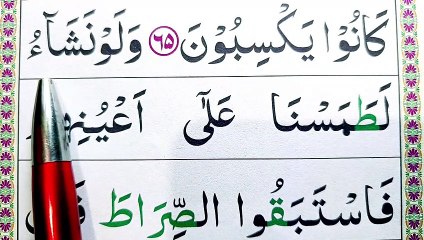 كَانُوْا يَكْسِبُوْنَ ۝٦٥ وَلَوْ نَشَآءُ
لَطَمَسْنَا عَلٰٓى
فَاسْتَبَقُوا الصِّرَاطَ